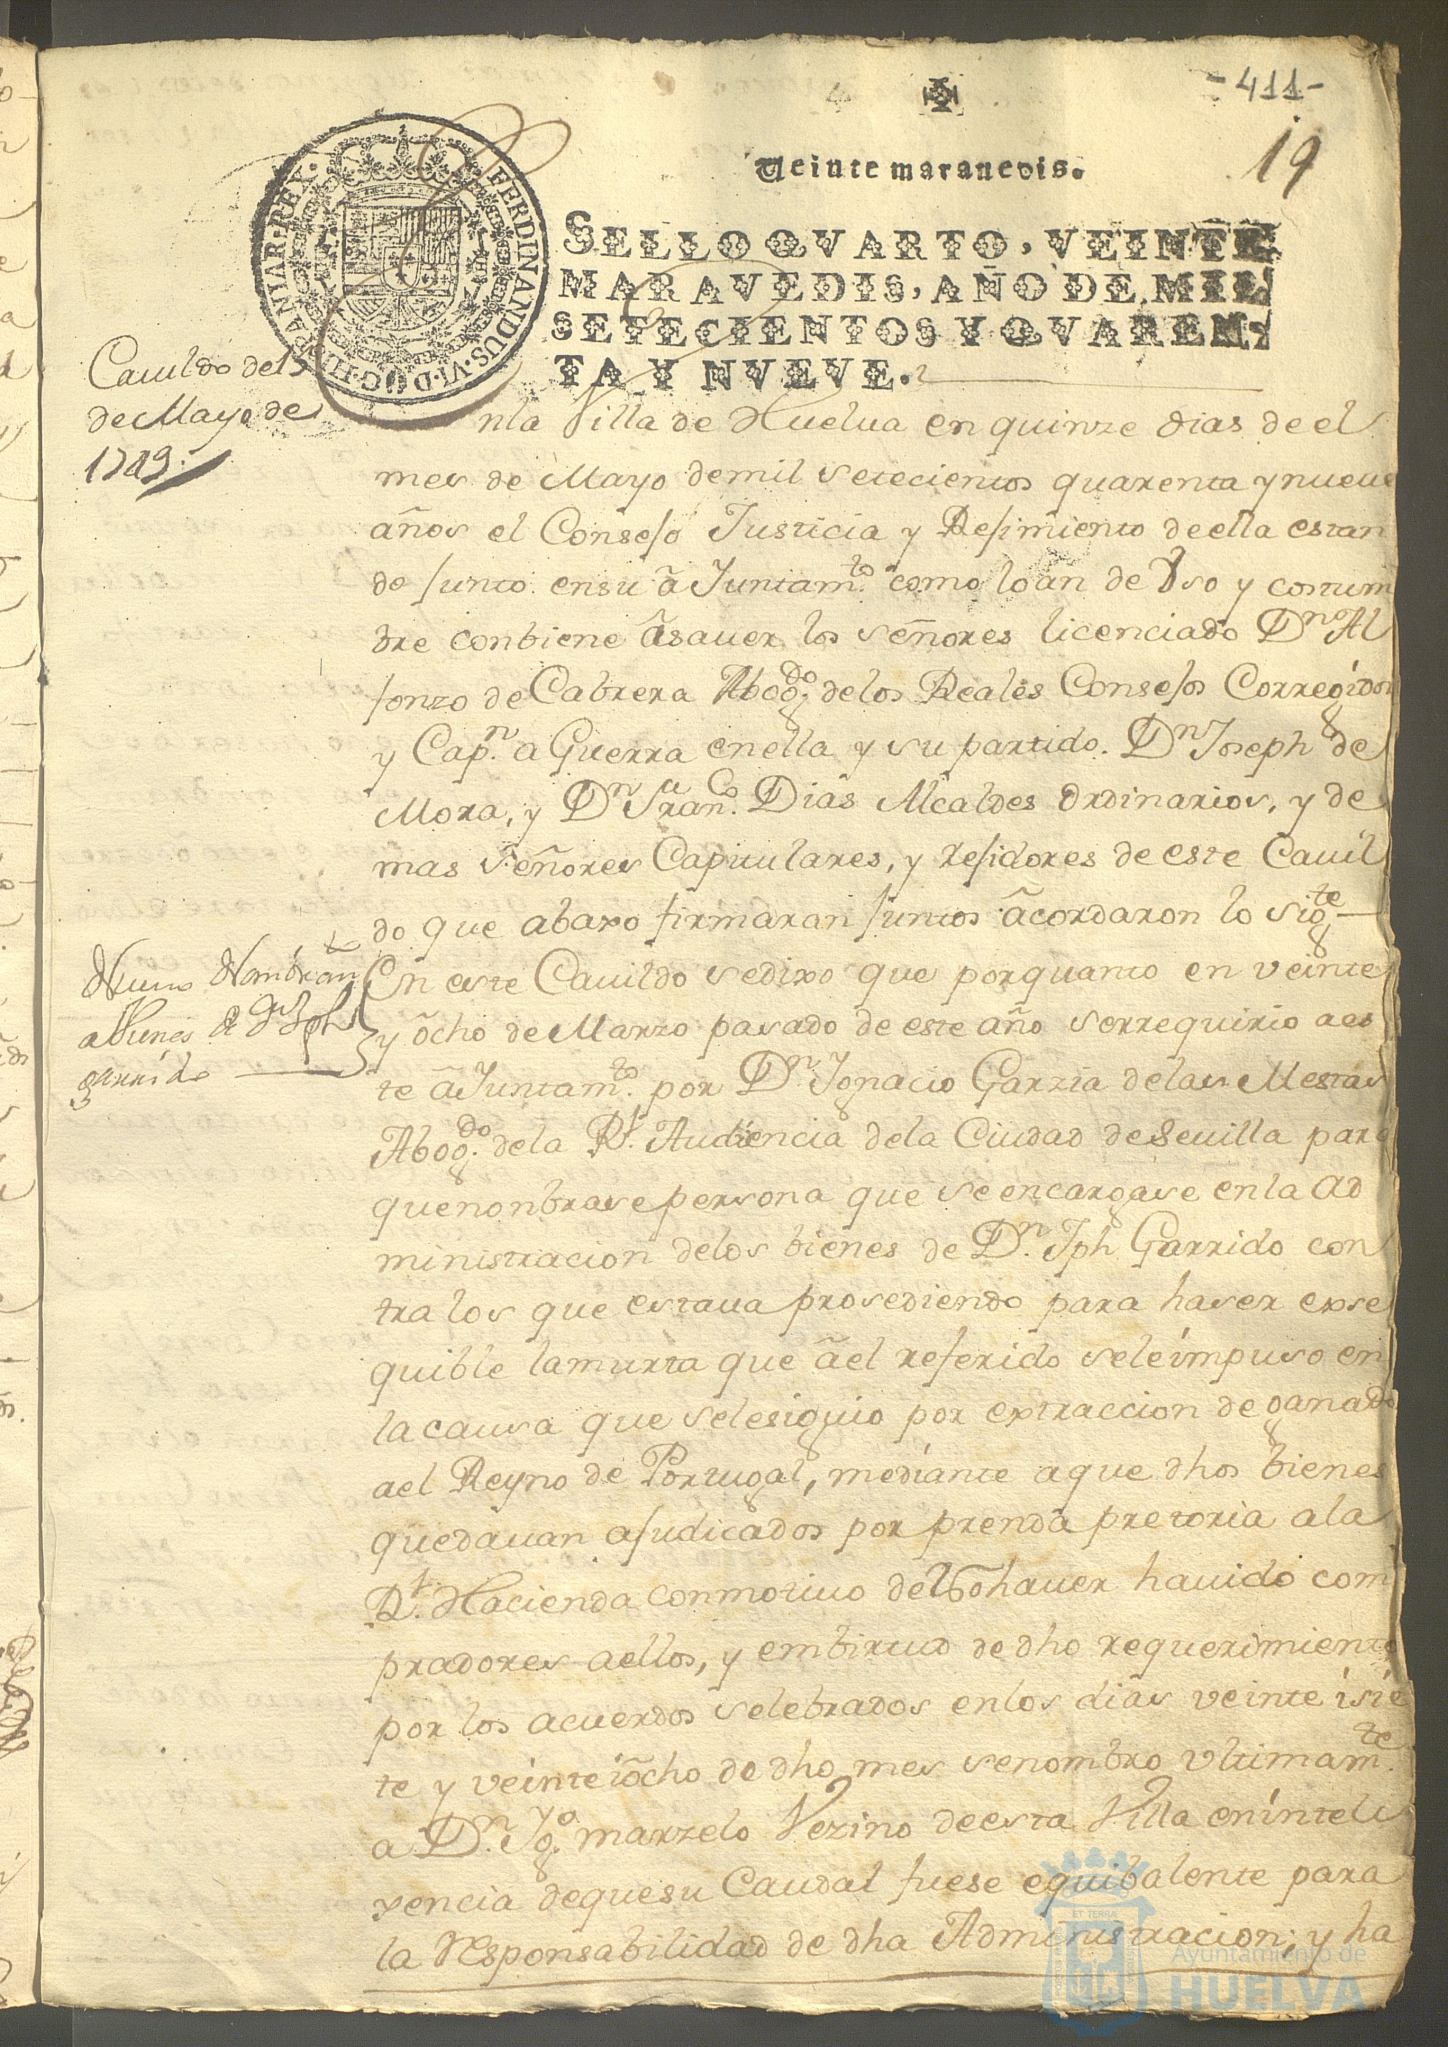 -411-
19
Veinte maravedis.
FERDINANDUS·VI·D·G·HISPANIAR·REX·
SELLO QVARTO, VEINTE
MARAVEDIS, AÑO DE MIL
SETECIENTOS Y QVAREN-
TA Y NVEVE.
Cauildo del 15
de Mayo de
1749.
nla Villa de Huelua en quinze dias de el
mes de Mayo de mil setecientos quarenta y nueue
años el Consejo Justicia y Rejimiento de ella estan
do junto en su ã Juntam.to como lo an de Vso y costum
bre conbiene ãsauer los señores licenciado D.n Al
fonzo de Cabrera Abog.do de los Reales Consejos Corregidor
y Cap.n a Guerra en ella y su partido. D.n Joseph de
Mora, y D.n Fran.co Dias Alcaldes Ordinarios, y de
mas Señores Capitulares, y rejidores de este Cauil
do que abaxo firmaran juntos ãcordaron lo sig.te
Nueuo Nombram.to
a Vienes de D.n Jph
garrido
En este Cauildo se dixo que por quanto en veinte
y õcho de Marzo pasado de este año se rrequirio a es
te ã Juntam.to por D.n Ignacio Garzia de las Mestas
Abog.do de la R.l Audiencia de la Ciudad de Seuilla para
que nonbrase persona que se encargase en la ad
ministracion de los bienes de D.n Jph Garrido con
tra los que estaua prosediendo para haser exse
quible la murta que ã el referido se le impuso en
la causa que se le siguio por extraccion de ganado
a el Reyno de Portugal, mediante a que dhos bienes
quedauan ajudicados por prenda pretoria a la
R.l Hacienda con motiuo de no hauer hauido com
pradores a ellos, y en birtud de dho requerimiento
por los acuerdos selebrados en los dias veinte i sie
te y veinte i õcho de dho mes se nombro vltimam.te
a D.n Ig.o marzelo Vezino de esta Villa en inteli
xencia de que su Caudal fuese equibalente para
la responsabilidad de dha Administracion; y ha
ET TERRA
Ayuntamiento de
HUELVA